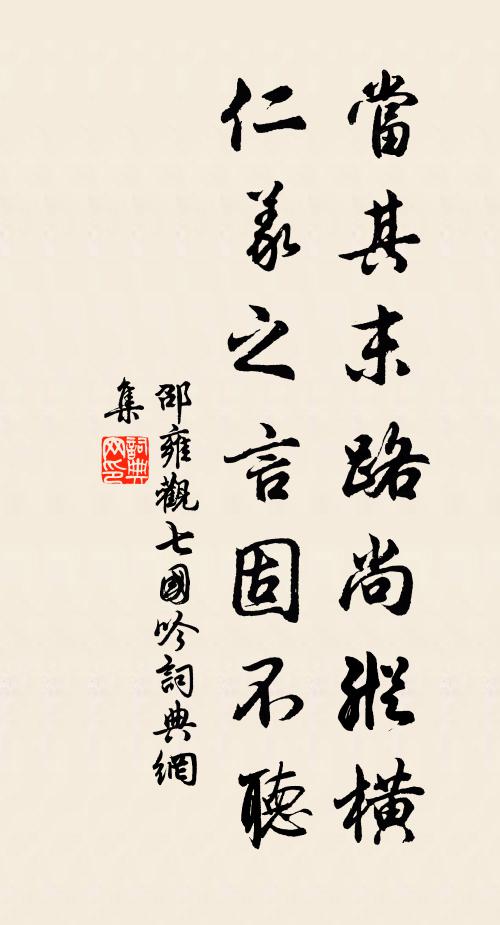 當其末路尚縱橫
仁義之言固不聽
邵雍觀七國吟詞典網
集
詞典
网印